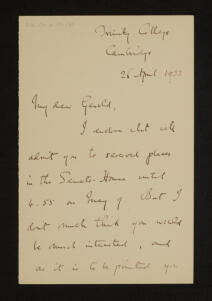 Trinity College
Cambridge
26 April 1933
My dear Gerald,
I enclose
admit you to reserved places
in the Senate-House until
4.55 on May 9 But I
don't much think you would
be much interested, and
as it is to be printed you